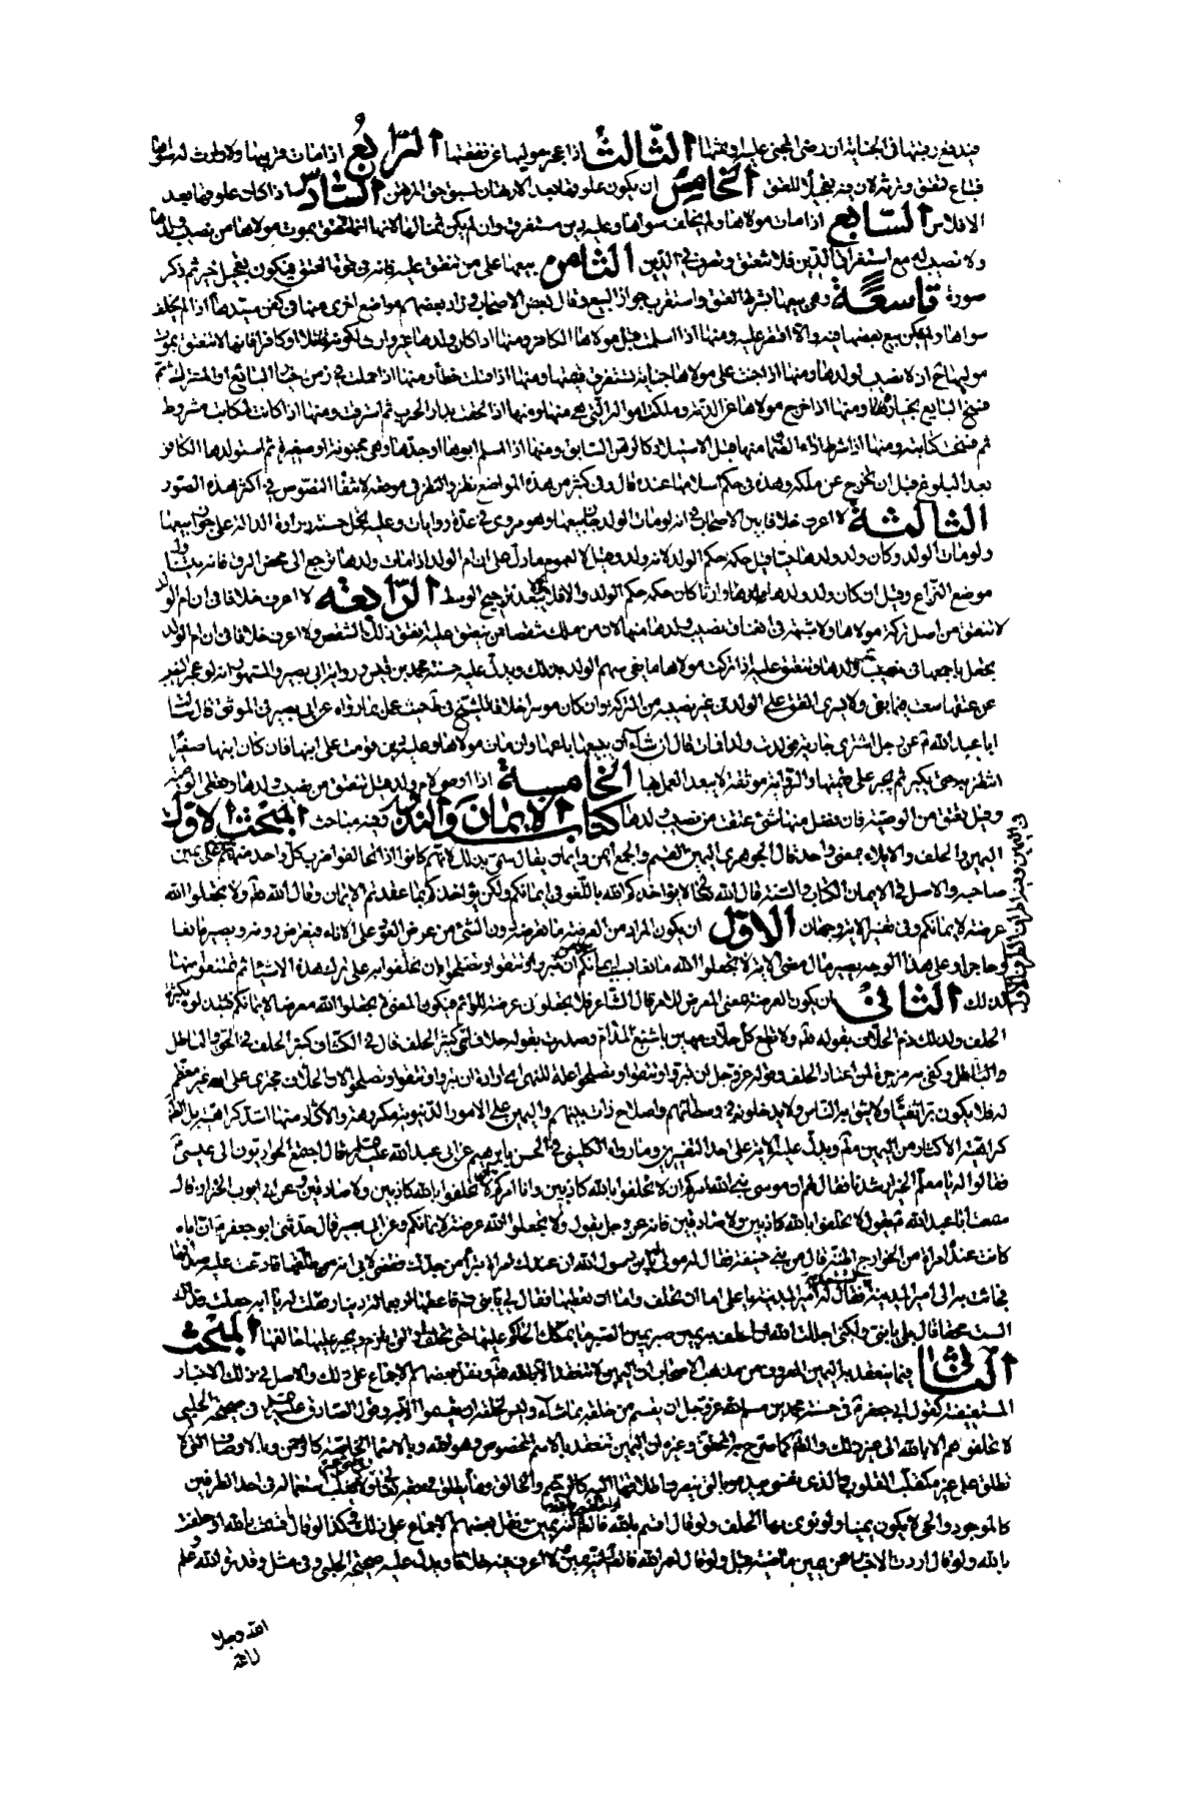 فيدفع رقبتها في الجناية ان رضي المجني عليه او ثمنها الثالث اذا عجز مولها عن نفقتها الرابع اذا مات قريبها ولا وارث له سواها
فتباع لتعتق وترثه لان فيه تعجيلا للعتق الخامس ان يكون علوقها بعد الارتهان لسبق حق المرتهن السادس اذا كان علوقها بعد
الافلاس السابع اذا مات مولاها ولم يخلف سواها وعليه دين مستغرق وان لم يكن ثمنا لها لانها انما تعتق بموت مولاها من نصيب ولدها
ولا نصيب له مع استغراق الدين فلا تعتق وتصرف في الدين الثامن بيعها على من تنعتق عليه فانه في قوة العتق فيكون تعجيل خير ثم ذكر
صورة تاسعة وهي بيعها بشرط العتق واستقرب جواز البيع وقال بعض الاصحاب وزاد بعضهم مواضع اخرى منها في كفن سيدها اذا لم يخلف
سواها ولم يمكن بيع بعضها فيه والا اقتصر عليه ومنها اذا اسلمت قبل مولاها الكافر ومنها اذا كان ولدها غير وارث لكونه قاتلا او كافرا فانها لا تنعتق بموت
مولها ح اذ لا نصيب لولدها ومنها اذا جنت على مولاها جناية تستغرق قيمتها ومنها اذا قتلت خطأ ومنها اذا حملت في زمن خيار البايع او المشترك ثم
فسخ البايع بخياره ومنها اذا خرج مولاها عن الذمة وملكت امواله التي هي منها ومنها اذا لحقت بدار الحرب ثم استرقت ومنها اذا كانت لمكاتب مشروط
ثم فسخت كتابته ومنها اذا شرط اداء الضمان منها قبل الاستيلاد كالرهن السابق ومنها اذا اسلم ابوها او جدها وهي مجنونة او صغيرة ثم استولدها الكافر
بعد البلوغ قبل ان تخرج عن ملكه وهذه في حكم اسلامها عنده قال وفي كثير من هذه المواضع نظر والنظر في موضعه لانتفاء النصوص في اكثر هذه الصور
الثالثة لا اعرف خلافا بين الاصحاب في انه لو مات الولد جاز بيعها وهو مروي في عدة روايات وعليه يحمل حسنة زرارة الدالة على جواز بيعها
ولو مات الولد وكان ولد ولدها حيا قيل حكمه حكم الولد لانه ولد وقيل لا لعموم ما دل على ان ام الولد اذا مات ولدها ترجع الى محض الرق فانه يتناول
موضع النزاع وقيل ان كان ولد ولدها وارثا كان حكمه حكم الولد والا فلا الرابعة لا اعرف خلافا في ان ام الولد
لا تنعتق من اصل تركة مولاها ولا شبهة في انعتاق نصيب ولدها منها لان من ملك شقصا ممن ينعتق عليه انعتق ذلك الشقص ولا اعرف خلافا في ان ام الولد
يجعل باجمعها في نصيب ولدها وتنعتق عليه اذا ترك مولاها ما يفي سهم الولد بذلك ويدل عليه حسنة محمد بن قيس ورواية ابي بصير والمشهور انه لو عجز النصيب
عن عتقها سعت فيما بقي ولا يسري العتق على الولد من غير نصيبه من التركة وان كان موسرا خلافا للشيخ في بحث عملا بما رواه عن ابي بصير في الموثق قال سالت
ابا عبد الله ع عن رجل اشترى جارية فولدت منه ولدا فمات قال ان شاء ان يبيعها باعها وان مات مولاها وعليه دين قومت على ابنها فان كان ابنها صغيرا
انتظر به حتى يكبر ثم يجبر على قيمتها والرواية موثقة لا يبعد العمل بها الخامسة اذا اوصى لام ولده هل تنعتق من نصيب ولدها وتعطى الوصية
وقيل تعتق من الوصية فان فضل منها شيء عتقت من نصيب ولدها كتاب الايمان والنذور وفيه مباحث المبحث الاول
اليمين والحلف والايلاء بمعنى واحد قال الجوهري اليمين القسم والجمع ايمن وايمان يقال سمي بذلك لانهم كانوا اذا تحالفوا ضرب كل واحد منهم على يمين
صاحبه والاصل في الايمان الكتاب والسنة قال الله تعالى لا يؤاخذكم الله باللغو في ايمانكم ولكن يؤاخذكم بما عقدتم الايمان وقال الله تعالى ولا تجعلوا الله
عرضة لايمانكم وفي تفسير الاية وجهان الاول ان يكون المراد من العرضة ما تعرضه دون الشيء من عرض العود على الاناء فيعترض دونه ويصير مانعا
وحاجزا وعلى هذا الوجه يصير مال معنى الاية لا تجعلوا الله مانعا بايمانكم ان تبروا وتتقوا وتصلحوا بان تحلفوا به على ترك هذه الاشياء ثم تمتنعوا منها
لذلك الثاني ان يكون العرضة بمعنى المعرض للامر قال الشاعر فلا تجعلوني عرضة للوائم فيكون المعنى لا تجعلوا الله معرضا لايمانكم فتبتذلوه بكثرة
الحلف ولذلك ذم الحلاف بقوله تعالى ولا تطع كل حلاف مهين باشنع المذام وصدرت بقوله حلاف اي كثير الحلف قال في الكشاف كثير الحلف في الحق والباطل
والباطل وكفى به مزجرة لمن اعتاد الحلف وقوله عز وجل ان تبروا وتتقوا وتصلحوا علة للنهي اي ارادة ان تبروا وتتقوا وتصلحوا لان الحلاف مجتري على الله غير معظم
له فلا يكون برا متقيا ولا يثق به الناس ولا يدخلونه في وسطاتهم واصلاح ذات بينهم واليمين على الامور الدنيوية مكروهة والاكثار منها اشد كراهة
كراهية الاكثار من اليمين ويدل عليه الاية على احد التفسيرين وما رواه الكليني في الحسن بابرهيم عن ابي عبد الله عليه السلم قال اجتمع الحواريون الى عيسى ع
فقالوا له يا معلم الخير ارشدنا فقال لهم ان موسى نبي الله امركم ان لا تحلفوا بالله كاذبين وانا امركم ان لا تحلفوا بالله كاذبين ولا صادقين وعن ابي ايوب الخزاز قال
سمعت ابا عبد الله ع يقول لا تحلفوا بالله كاذبين ولا صادقين فانه عز وجل يقول ولا تجعلوا الله عرضة لايمانكم وعن ابي بصير قال حدثني ابو جعفر ع ان اباه
كانت عنده امراة من الخوارج اظنه قال من بني حنيفة فقال له مولى له يا بن رسول الله ان عندك امراة تبرأ من جدك فقضي لابي انه طلقها فادعت عليه صداقها
فجاءت به الى امير المدينة فقال له امير المدينة يا علي اما ان تحلف واما ان تعطيها فقال لي يا بني قم فاعطها اربعمائة دينار فقلت له يا ابه جعلت فداك
الست محقا قال بلى يا بني ولكني اجللت الله ان احلف به يمين صبر المبحث
الثاني فيما ينعقد به اليمين المعروف من مذهب الاصحاب ان اليمين لا تنعقد الا بالله تعالى ونقل بعضهم الاجماع على ذلك والاصل في ذلك الاخبار
المستفيضة كقول ابي جعفر ع في حسنة محمد بن مسلم ان لله عز وجل ان يقسم من خلقه بما شاء وليس لخلقه ان يقسموا الا به وقول الصادق عليه السلم في صحيحة الحلبي
لا تحلفوهم الا بالله الى غير ذلك واعلم كما صرح به المحقق وغيره ان اليمين تنعقد بالاسم المخصوص وهو الله وبالاسماء الخاصة كالرحمن وبالاوصاف التي لا
تطلق على غيره كمقلب القلوب والذي نفسي بيده وبالتي ينصرف اطلاقها اليه كالرحيم والخالق وما يطلق في حقه تعالى وحق غيره ولا يغلب استعماله في احد الطرفين
كالموجود والحي لا يكون يمينا ولو نوى بها الحلف ولو قال اقسم بالله فانه يمين ونقل بعضهم الاجماع على ذلك وكذا لو قال اقسمت بالله او حلفت
بالله ولو قال اردت الاخبار عن يمين ماضية قبل ولو قال لعمر الله فانه يمين لا اعرف فيه خلافا ويدل عليه صحيحة الحلبي وفي مثل وقدرة الله وعلم
الله وجلا